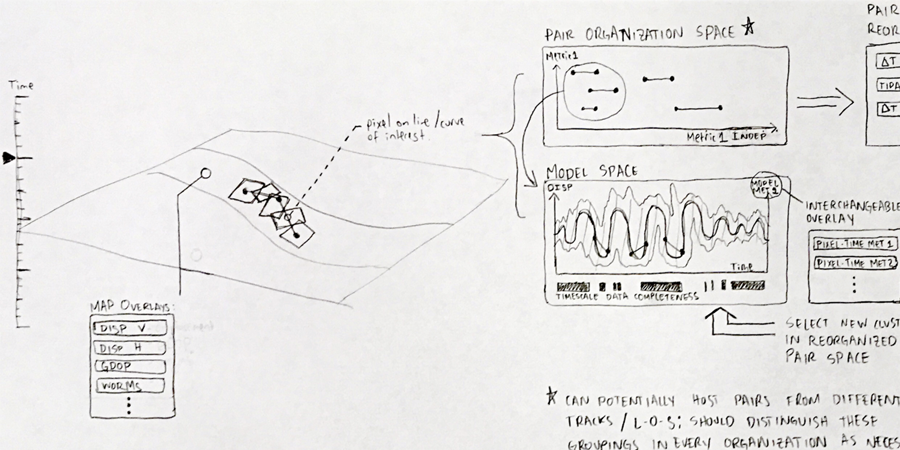 Time
pixel on line/curve
of interest
MAP OVERLAYS:
DISP V
DISP H
GDOP
WORMS
PAIR ORGANIZATION SPACE
Metric 1
Metric 1 INDEP
MODEL SPACE
DISP
MODEL
MET 2
Time
TIMESCALE DATA COMPLETENESS
PAIR
REOR
ΔT
TIPA
ΔT
INTERCHANGEABLE
OVERLAY
PIXEL-TIME MET 1
PIXEL-TIME MET 2
SELECT NEW CLUST
IN REORGANIZED
PAIR SPACE
CAN POTENTIALLY HOST PAIRS FROM DIFFERENT
TRACKS / L-O-S; SHOULD DISTINGUISH THESE
GROUPINGS IN EVERY ORGANIZATION AS NECES